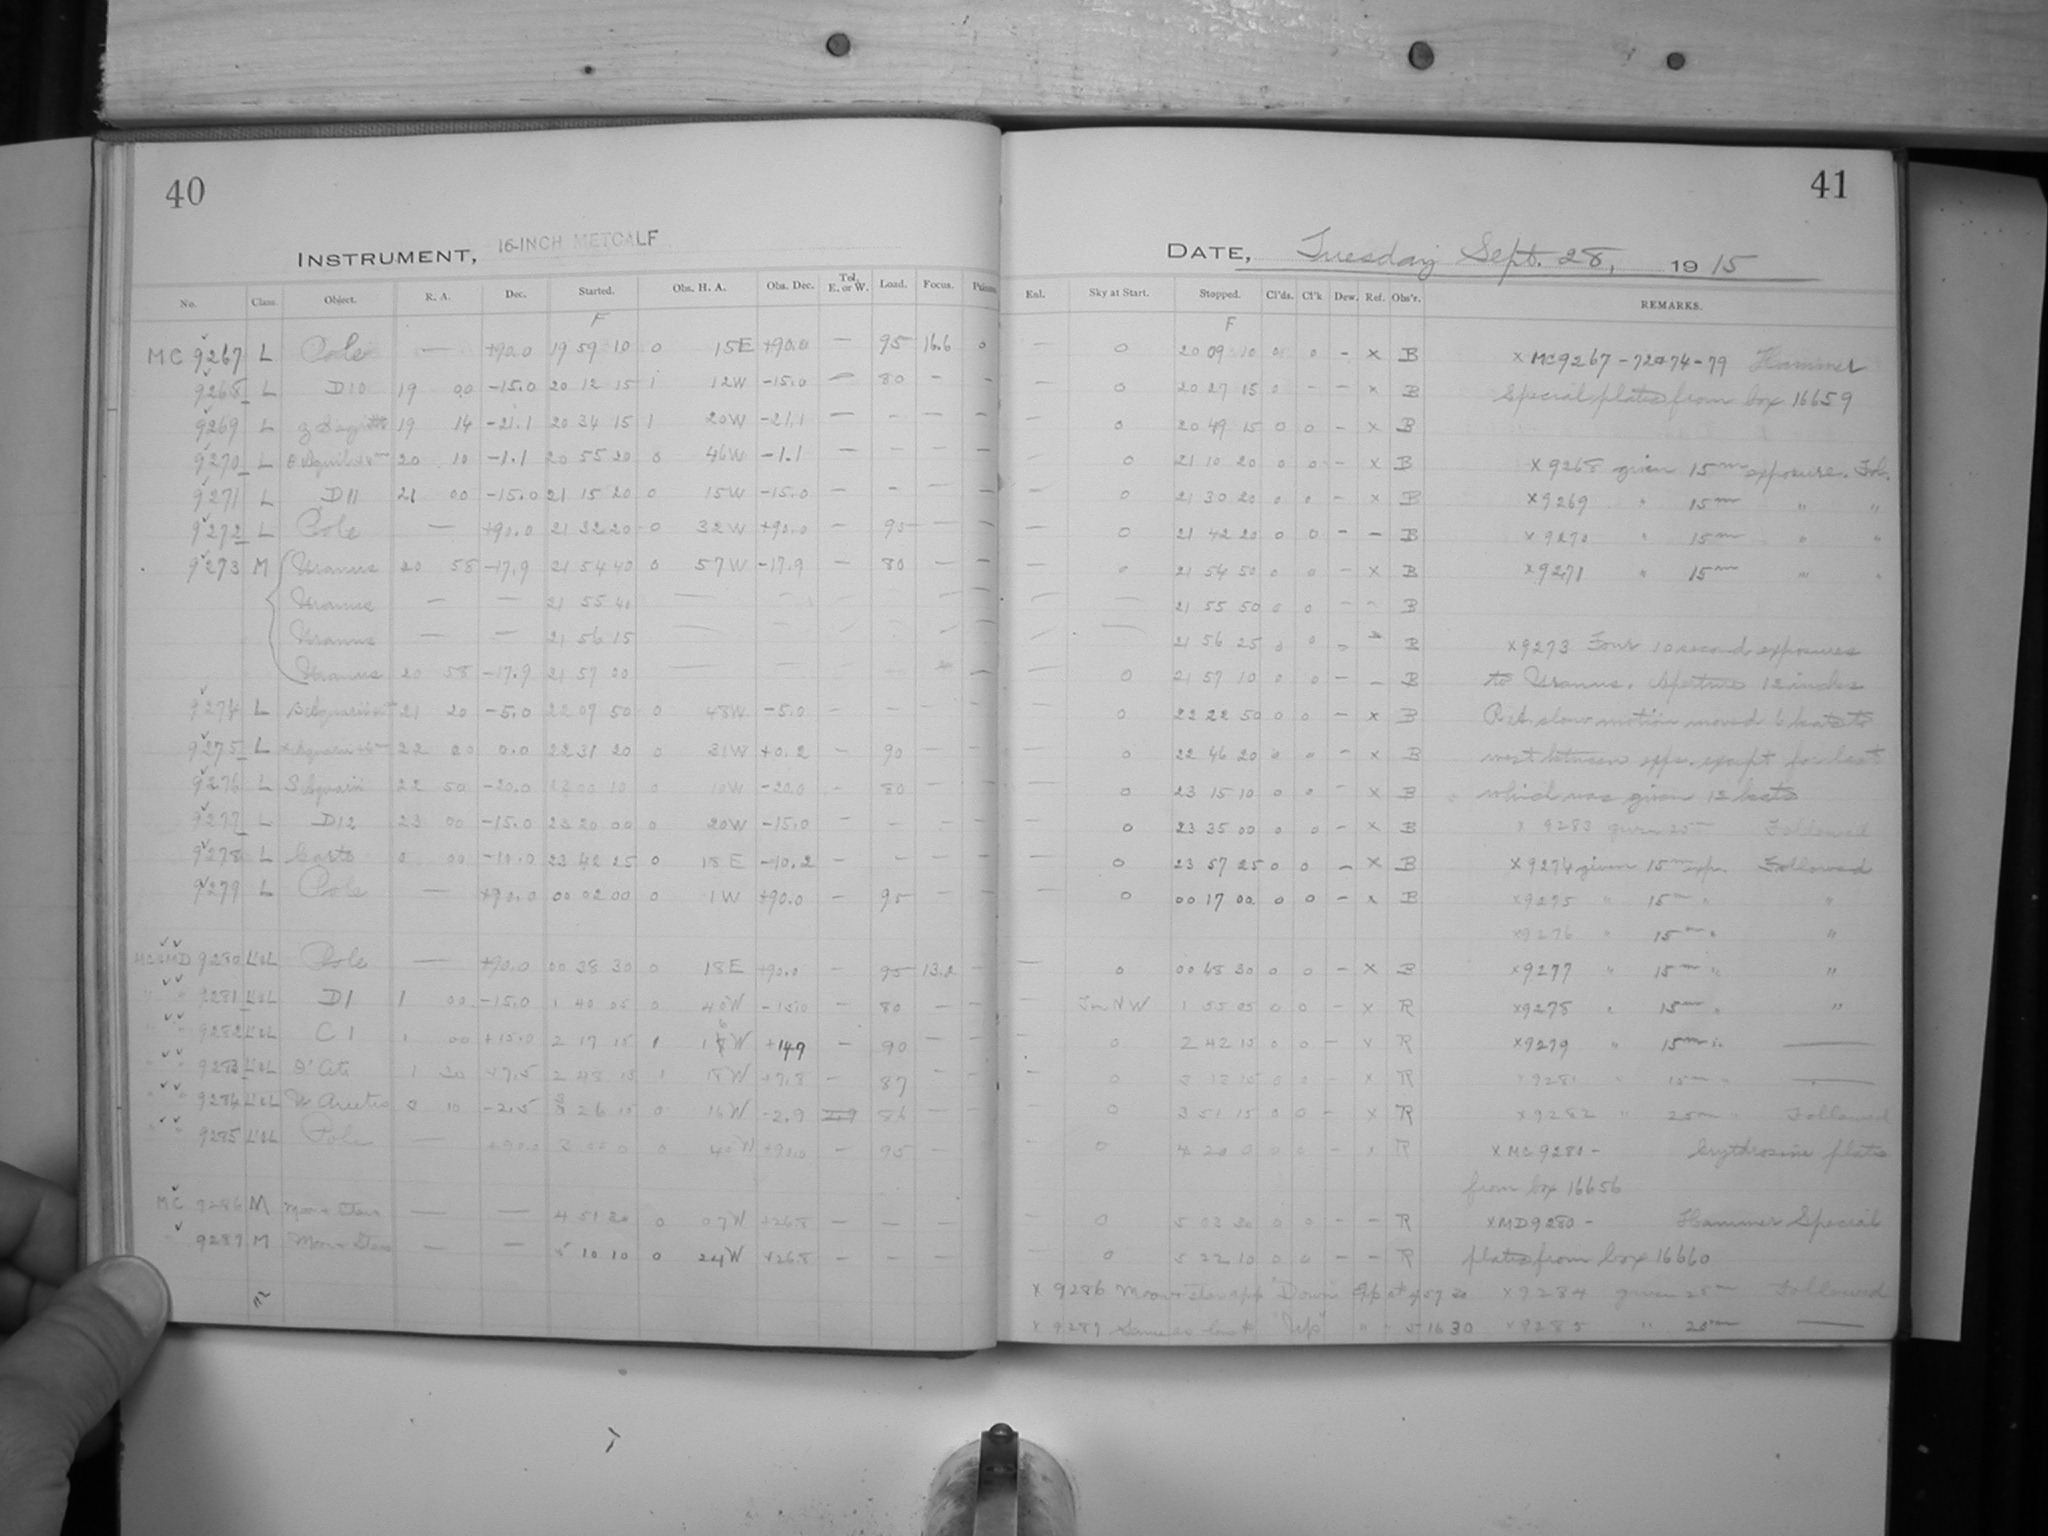 40
INSTRUMENT, 16-INCH METCALF
No. Class. Object. R. A. Dec. Started. Obs. H. A. Obs. Dec. Tel. E. or W. Load. Focus.
F
MC 9267 L Pole — +90.0 19 59 10 0 15E +90.0 — 95 16.6 0
9268 L D10 19 00 -15.0 20 12 15 1 12W -15.0 — 80 - -
9269 L 19 14 -21.1 20 34 15 1 20W -21.1 — - — -
9270 L 20 10 -1.1 20 55 20 0 46W -1.1 — — — —
9271 L D11 21 00 -15.0 21 15 20 0 15W -15.0 - - — —
9272 L Pole — +90.0 21 32 20 0 32W +90.0 - 95 — —
9273 M Uranus 20 58 -17.9 21 54 40 0 57W -17.9 - 80 — —
Uranus — — 21 55 40 —
Uranus — — 21 56 15 —
Uranus 20 58 -17.9 21 57 00 —
9274 L 21 20 -5.0 22 07 50 0 48W -5.0 - - - -
9275 L 22 20 0.0 22 31 20 0 31W +0.2 - 90 - -
9276 L 22 50 -20.0 23 00 10 0 10W -20.0 - 80 - -
9277 L D12 23 00 -15.0 23 20 00 0 20W -15.0 - - - -
9278 L 0 00 -10.0 23 42 25 0 18E -10.2 - - - -
9279 L Pole — +90.0 00 02 00 0 1W +90.0 - 95 - -
MC & MD 9280 L&L Pole — +90.0 00 38 30 0 18E +90.0 - 95 13.2 -
" " 9281 L&L D1 1 00 -15.0 1 40 05 0 40W -15.0 - 80 - -
" " 9282 L&L C1 1 00 +15.0 2 17 15 1 W +14.9 - 90 - -
" " 9283 L&L 1 20 +7.5 2 48 15 1 18W +7.8 - 87 - -
" " 9284 L&L 3 10 -2.5 3 26 15 0 16W -2.9 86 - -
" " 9285 L&L Pole — +90.0 0 40W +90.0 - 95 -
MC 9286 M Moon & Stars — — 4 51 20 0 07W +26.8 - - -
" 9287 M Moon & Stars — — 5 10 10 0 24W +26.8 - - -
41
DATE, Tuesday Sept. 28, 1915
Enl. Sky at Start. Stopped. Cl'ds. Cl'k Dew. Ref. Obs'r. REMARKS.
F
— 0 20 09 10 0 0 - x B x MC9267-72&74-79 Hammer
— 0 20 27 15 0 - - x B Special plates from box 16659
— 0 20 49 15 0 0 - x B
— 0 21 10 20 0 0 - x B x 9268 given 15m exposure. Fol.
— 0 21 30 20 0 0 - x B x 9269 " 15m " "
— 0 21 42 20 0 0 - - B x 9270 " 15m " "
— 0 21 54 50 0 0 - x B x 9271 " 15m " "
— — 21 55 50 0 0 - - B
— — 21 56 25 0 0 - B x 9273 Four 10 second exposures
— 0 21 57 10 0 0 - - B to Uranus. Aperture 12 inches
— 0 22 22 50 0 0 - x B R.A. slow motion moved 6 beats to
— 0 22 46 20 0 0 - x B west between exps. except for last
— 0 23 15 10 0 0 - x B which was given 12 beats
— 0 23 35 00 0 0 - x B x 9283 given 25m Followed
— 0 23 57 25 0 0 - x B x 9274 given 15m exp. Followed
— 0 00 17 00 0 0 - x B x 9275 " 15m " "
x 9276 " 15m " "
— 0 00 48 30 0 0 - x B x 9277 " 15m " "
— In NW 1 55 05 0 0 - x R x 9278 " 15m " "
— 0 2 42 10 0 0 - x R x 9279 " 15m " —
- 0 3 13 15 0 0 - x R x 9281 " 15m " —
- 0 3 51 15 0 0 - x R x 9282 " 25m " Followed
- 0 4 20 0 0 0 - x R x MC 9280 - Erythrosine plates
from box 16656
- 0 5 03 20 0 0 - - R x MD 9280 - Hammer Special
- 0 5 22 10 0 0 - - R plates from box 16660
x 9286 Moon & stars app "Down" x 9284 given 25m Followed
x 9287 Same as last "Up" " " 5 16 30 x 9285 " 20m —